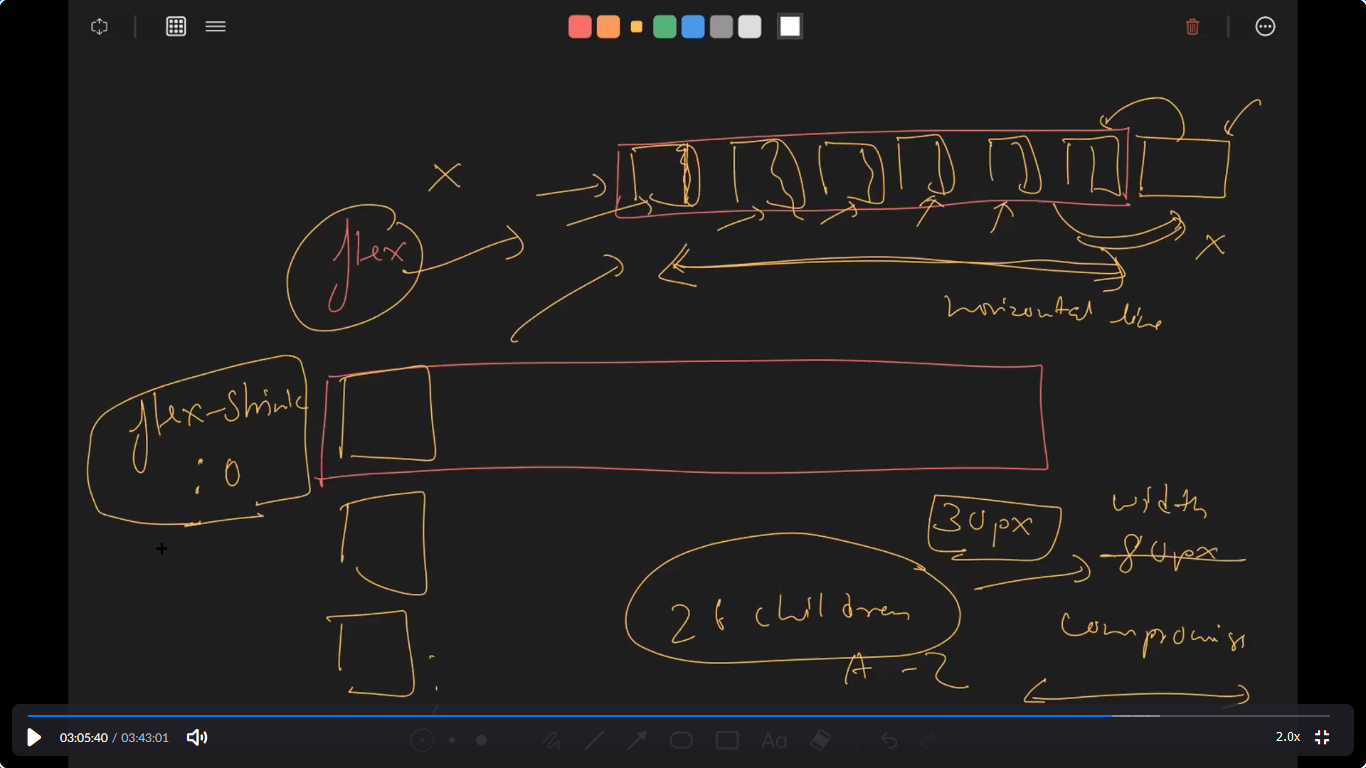 X
flex
X
horizontal line
flex-shrink
: 0
30px
width
80px
26 children
A - Z
compromise
Aa
03:05:40 / 03:43:01
2.0x